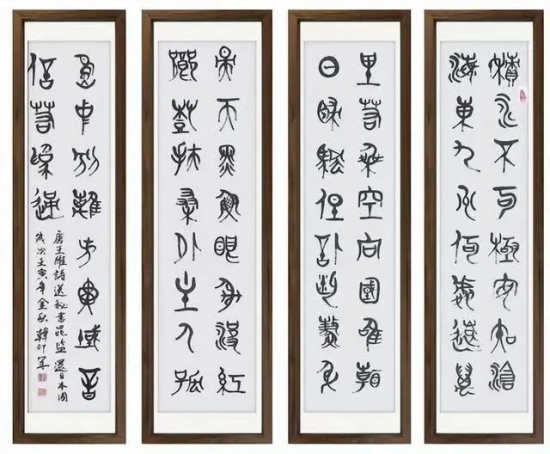 積水不可極安知滄
海東九州何處遠萬
里若乘空向國唯看
日歸帆但信風鰲身
映天黑魚眼射波紅
鄉樹扶桑外主人孤
島中別離方異域音
信若為通
唐王維詩送秘書晁監還日本國
歲次壬寅年金秋韓印軍